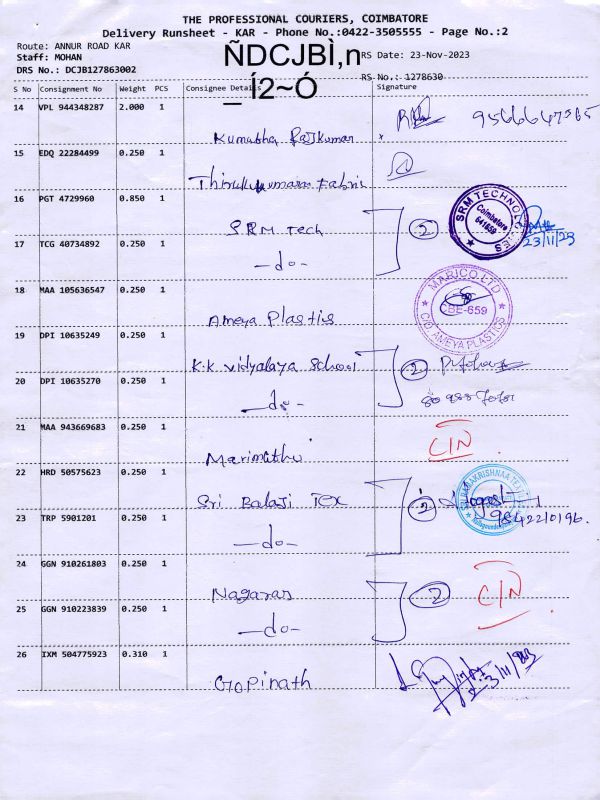 THE PROFESSIONAL COURIERS, COIMBATORE
Delivery Runsheet - KAR - Phone No.:0422-3505555 - Page No.:2
Route: ANNUR ROAD KAR
Staff: MOHAN
DRS No.: DCJB127863002
ÑDCJBÌ‚n
_Í2~Ó
RS Date: 23-Nov-2023
RS No.: 1278630
S No Consignment No Weight PCS Consignee Details Signature
14 VPL 944348287 2.000 1
Kumutha Rajkumar
15 EDQ 22284499 0.250 1
Thirukkumaran Fabric
16 PGT 4729960 0.850 1
SRM Tech 2
SRM TECHNOLOGIES
Coimbatore
641659
23/11/23
17 TCG 40734892 0.250 1
-do-
18 MAA 105636547 0.250 1
Ameya Plastics
MARICO LTD
CBE-659
C/O. AMEYA PLASTICS
19 DPI 10635249 0.250 1
K.K Vidyalaya School 2
20 DPI 10635270 0.250 1
-do-
21 MAA 943669683 0.250 1
Marimuthu
CIN
22 HRD 50575623 0.250 1
Sri Balaji Tex 2
23 TRP 5901201 0.250 1
-do-
9842210196.
24 GGN 910261803 0.250 1
Nagaraj 2 CIN
25 GGN 910223839 0.250 1
-do-
26 IXM 504775923 0.310 1
Gopinath